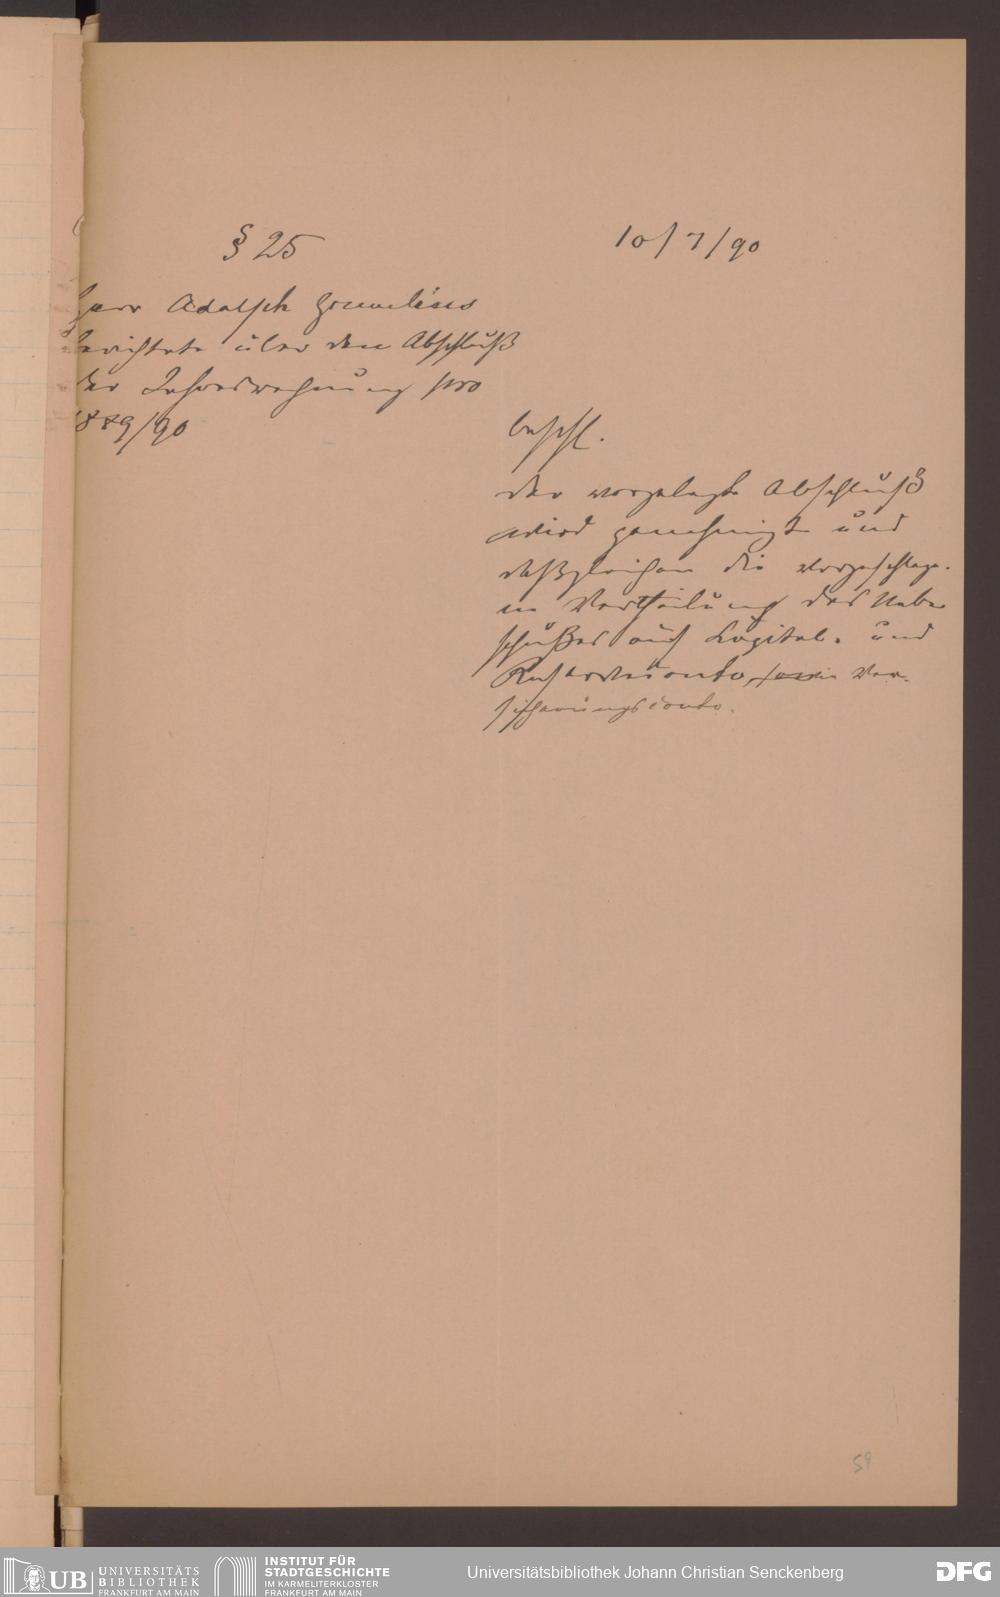 § 25
10/7/90
Herr Adolph Gumelius
berichtete über den Abschluß
der Jahresrechnung pro
1889/90
beschl.
Der vorgelegte Abschluß
wird genehmigt und
deßgleichen die vorgeschlage-
ne Vertheilung des Ueber
schußes auf Kapital- und
Reserveconto, sowie Ver-
sicherungsconto.
59
UB
UNIVERSITÄTS
BIBLIOTHEK
FRANKFURT AM MAIN
INSTITUT FÜR
STADTGESCHICHTE
IM KARMELITERKLOSTER
FRANKFURT AM MAIN
Universitätsbibliothek Johann Christian Senckenberg
DFG